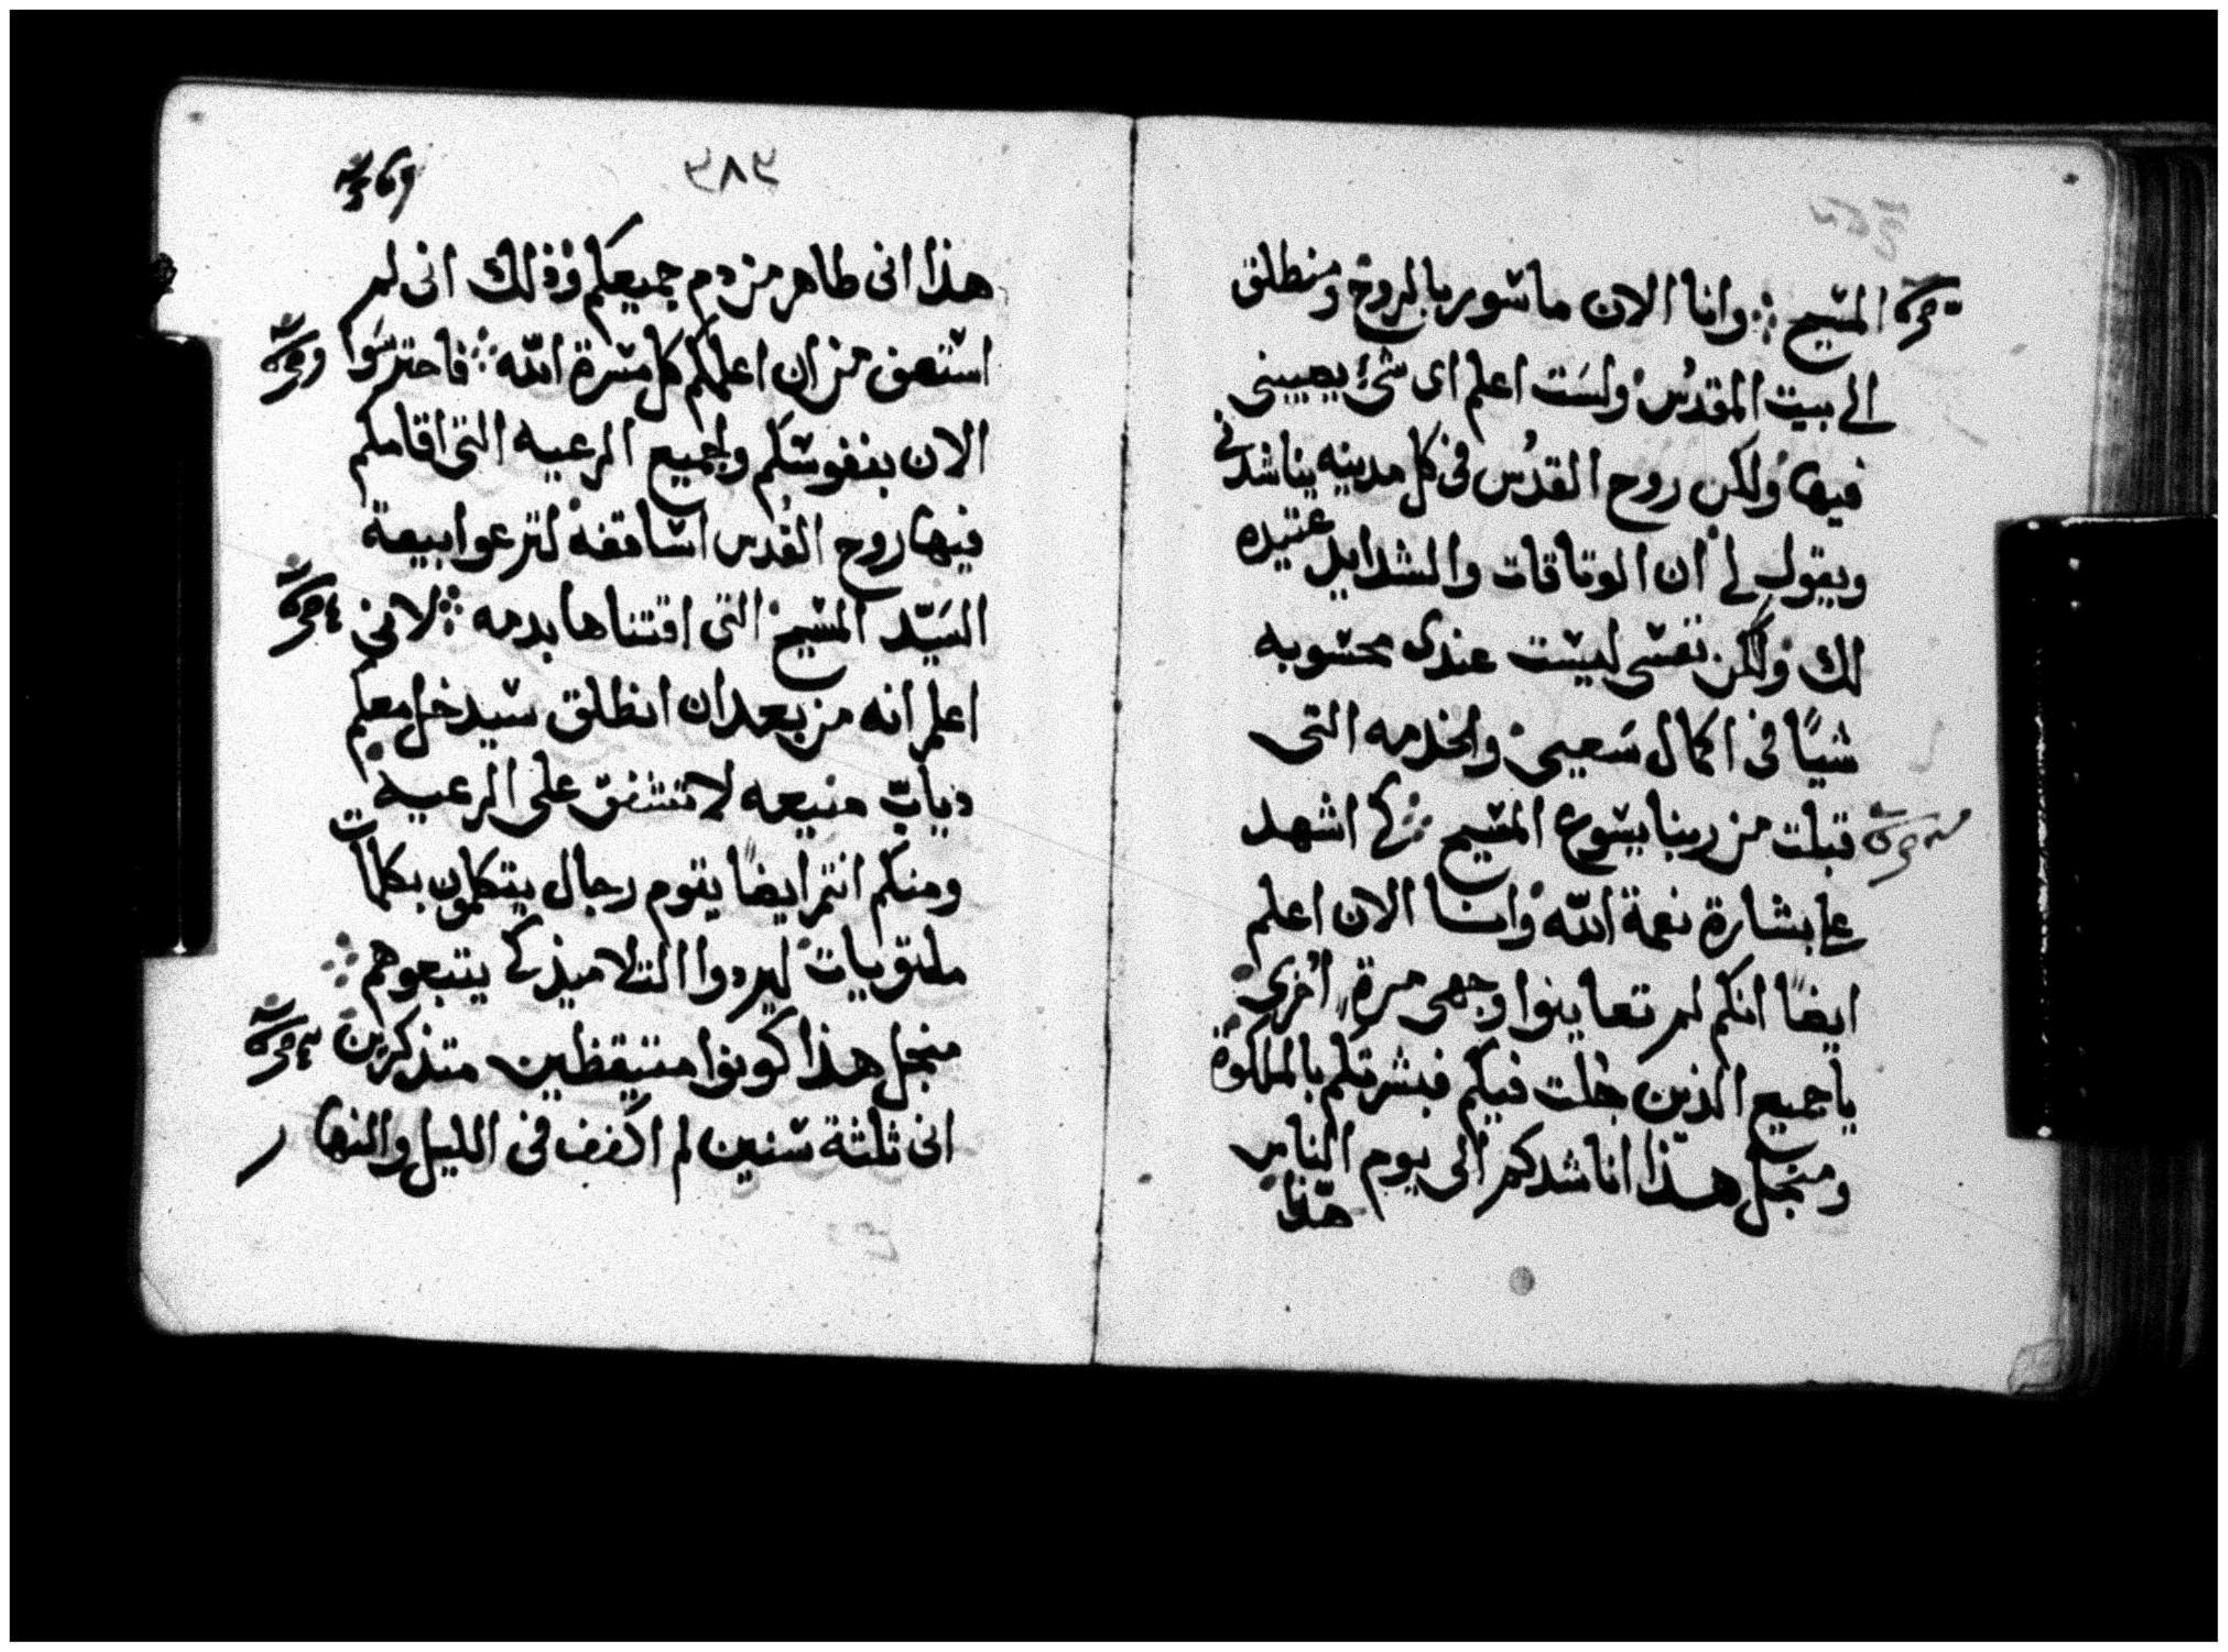 المسيح ⁘ وانا الان ماسور بالروح ومنطلق
الى بيت المقدس ولست اعلم اى شئ يصيبنى
فيها ولكن روح القدس فى كل مدينه يناشدنى
ويقول لى ان الوثاقات والشدايد عتيده
لك ولكن نفسى ليست عندى محسوبه
شيًا فى اكمال سعيى والخدمه التى
قبلت من ربنا يسوع المسيح ⁘ كى اشهد
على بشارة نعمة الله وانا الان اعلم
ايضًا انكم لم تعاينوا وجهى مرة اخرى
يا جميع الذين جلت فيكم فبشرتكم بالملكوة
ومنجل هذا اناشدكم الى يوم الناس
هذا
٣٨٣
هذا انى طاهر من دم جميعكم وذلك انى لم
استعف من ان اعلمكم كل مسرة الله ⁘ فاحترسوا
الان بنفوسكم ولجميع الرعيه التى اقامكم
فيها روح القدس اساقفه لترعوا بيعة
السيّد المسيح التى اقتناها بدمه ⁘ لانى
اعلم انه من بعد ان انطلق سيدخل معكم
دياب منيعه لا تشفق على الرعيه
ومنكم انتم ايضًا يقوم رجال يتكلمون بكلمات
ملتويات ليردوا التلاميذ كى يتبعوهم ⁘
منجل هذا كونوا متيقظين متذكرين
انى ثلثة سنين لم اكفف فى الليل والنهار